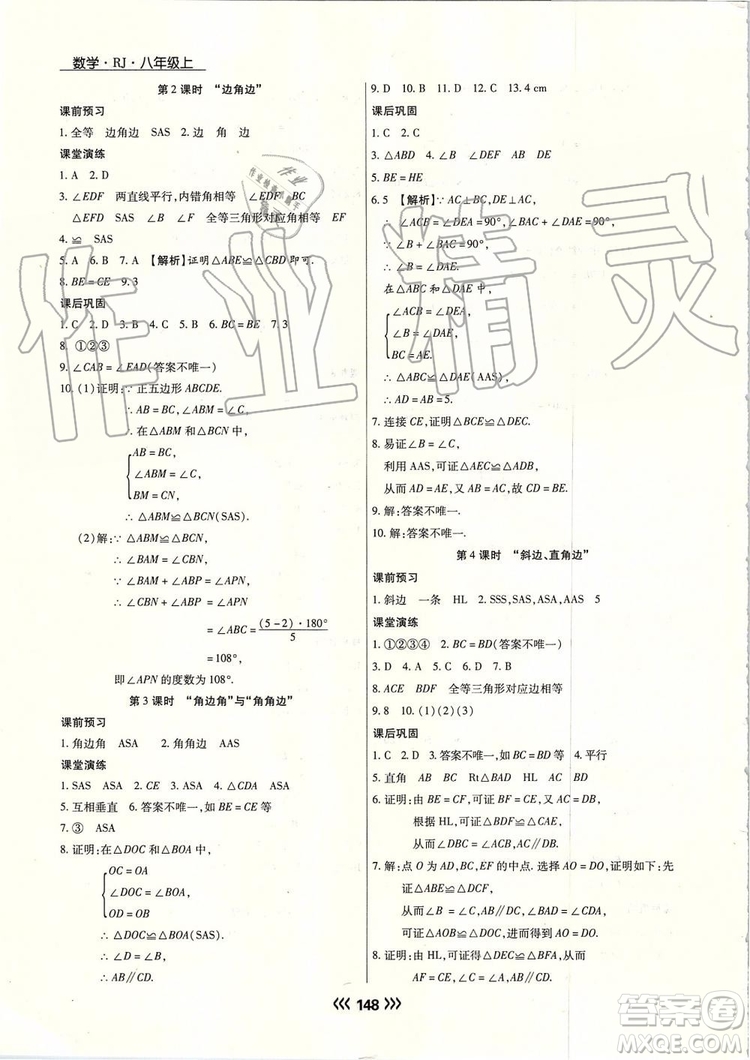 数学·RJ·八年级上
第2课时 “边角边”
课前预习
1. 全等 边角边 SAS 2. 边 角 边
课堂演练
1. A 2. D
3. ∠EDF 两直线平行,内错角相等 ∠EDF BC
△EFD SAS 全等三角形对应角相等 EF
4. ≌ SAS
5. A 6. B 7. A 【解析】证明△ABE≌△CBD即可.
8. BE=CE 9. 3
课后巩固
1. C 2. D 3. B 4. C 5. A 6. BC=BE 7. 3
8. ①②③
9. ∠CAB=∠EAD(答案不唯一)
10. (1)证明:∵正五边形ABCDE.
∴AB=BC,∠ABM=∠C,
∴在△ABM和△BCN中,
AB=BC,
∠ABM=∠C,
BM=CN,
∴△ABM≌△BCN(SAS).
(2)解:∵△ABM≌△BCN,
∴∠BAM=∠CBN,
∵∠BAM+∠ABP=∠APN,
∴∠CBN+∠ABP=∠APN
=∠ABC=(5-2)·180°/5
=108°,
即∠APN的度数为108°.
第3课时 “角边角”与“角角边”
课前预习
1. 角边角 ASA 2. 角角边 AAS
课堂演练
1. SAS ASA 2. CE 3. ASA 4. △CDA ASA
5. 互相垂直 6. 答案不唯一,如BE=CE等
7. ③ ASA
8. 证明:在△DOC和△BOA中,
OC=OA
∠DOC=∠BOA,
OD=OB
∴△DOC≌△BOA(SAS).
∴∠A=∠C.
∴AB∥CD.
9. D 10. B 11. D 12. C 13. 4 cm
课后巩固
1. C 2. C
3. △ABD
5. BE=HE
6. 5 【解析】∵AC⊥BC,DE⊥AE,
∴∠ACB=∠DEA=90°,∠BAC+∠DAE=90°,
∴∠B+∠BAC=90°,
∴∠B=∠DAE.
在△ABC和△DAE中,
∠ACB=∠DEA,
∠B=∠DAE,
BC=AE,
∴△ABC≌△DAE(AAS).
∴AD=AB=5.
7. 连接CE,证明△BCE≌△DEC.
8. 易证∠B=∠C,
利用AAS,可证△AEC≌△ADB,
从而AD=AE,又AB=AC,故CD=BE.
9. 解:答案不唯一.
10. 解:答案不唯一.
第4课时 “斜边、直角边”
课前预习
1. 斜边 一条 HL 2. SSS,SAS,ASA,AAS 5
课堂演练
1. ①②③④ 2. BC=BD(答案不唯一)
3. D 4. A 5. D 6. C 7. D
8. ACE BDF 全等三角形对应边相等
9. 8 10. (1)(2)(3)
课后巩固
1. C 2. D 3. 答案不唯一,如BC=BD等 4. 平行
5. 直角 AB BC Rt△ABD HL AC BD
6. 证明:由BE=CF,可证BF=CE,
根据HL,可证△BDF≌△CAE,
从而∠DBC=∠ACB,AC∥DB.
7. 解:点O为AD,BC,EF的中点.选择AO=DO,证明如下:先
证△ABE≌△DCF,
从而∠B=∠C,又AB=DC,
可证△AOB≌△DOC,进而得AO=DO.
8. 证明:由HL,可证得△DEC≌△BFA,从而
AF=CE,∠C=∠A,AB∥CD.
148
作业精灵
答案圈
MXQE.COM